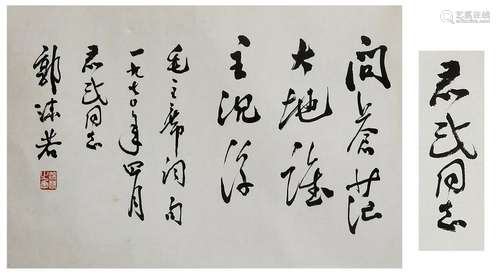 问苍茫
大地谁
主沉浮
毛主席词句
一九七〇年四月
君武同志
郭沫若
君武同志